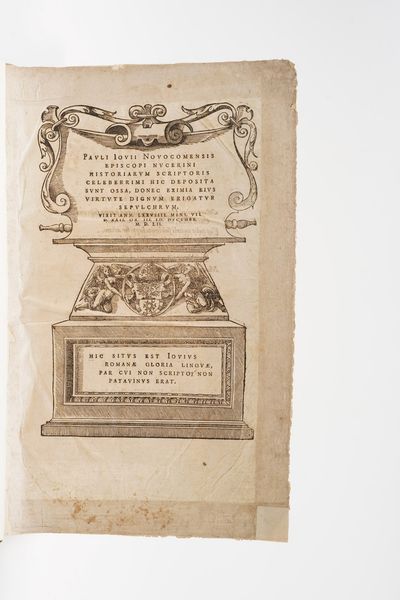 PAVLI IOVII NOVOCOMENSIS
EPISCOPI NVCERINI
HISTORIARVM SCRIPTORIS
CELEBERRIMI HIC DEPOSITA
SVNT OSSA, DONEC EXIMIA EIVS
VIRTVTE DIGNVM ERIGATVR
SEPVLCHRVM.
VIXIT ANN. LXVIIII MENS. VII
D. XXII. OB. III ID. DECEMB.
M. D. LII.
HIC SITVS EST IOVIVS
ROMANÆ GLORIA LINGVÆ,
PAR CVI NON SCRIPTOR NON
PATAVINVS ERAT.